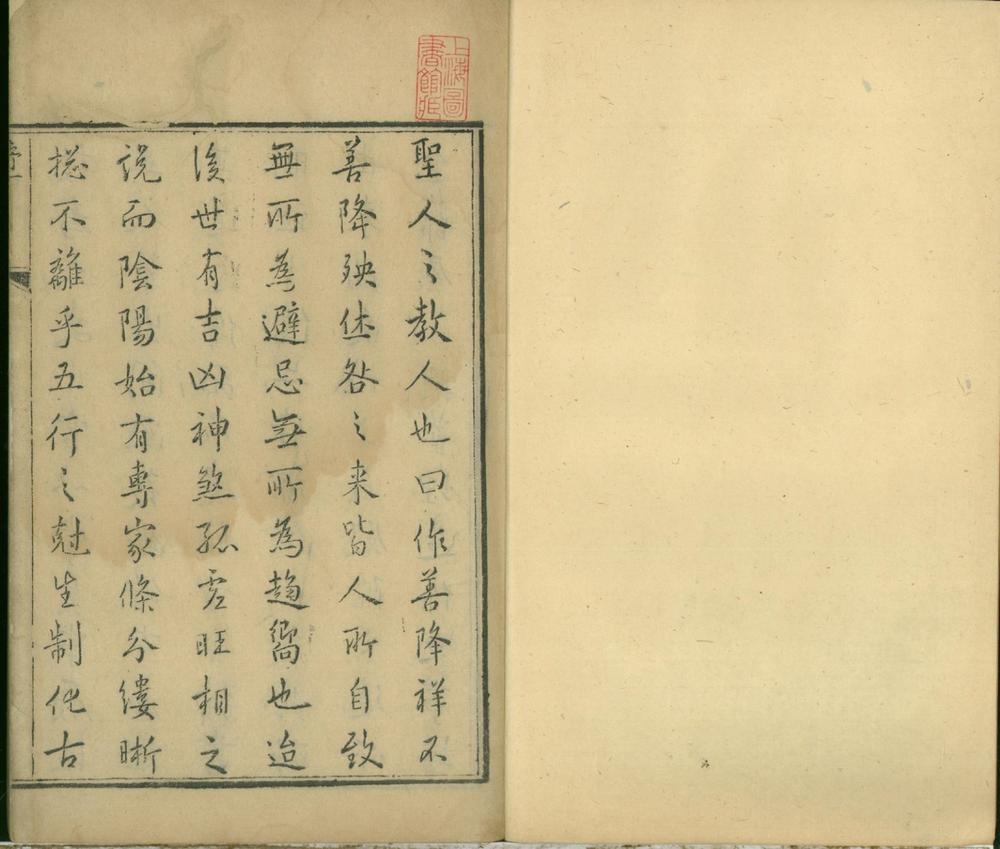 上海圖
書館藏
聖人之教人也曰作善降祥不
善降殃休咎之来皆人所自致
無所為避忌無所為趨嚮也迨
後世有吉凶神煞孤虛旺相之
说而陰陽始有專家條分縷晰
捴不離乎五行之尅生制化古